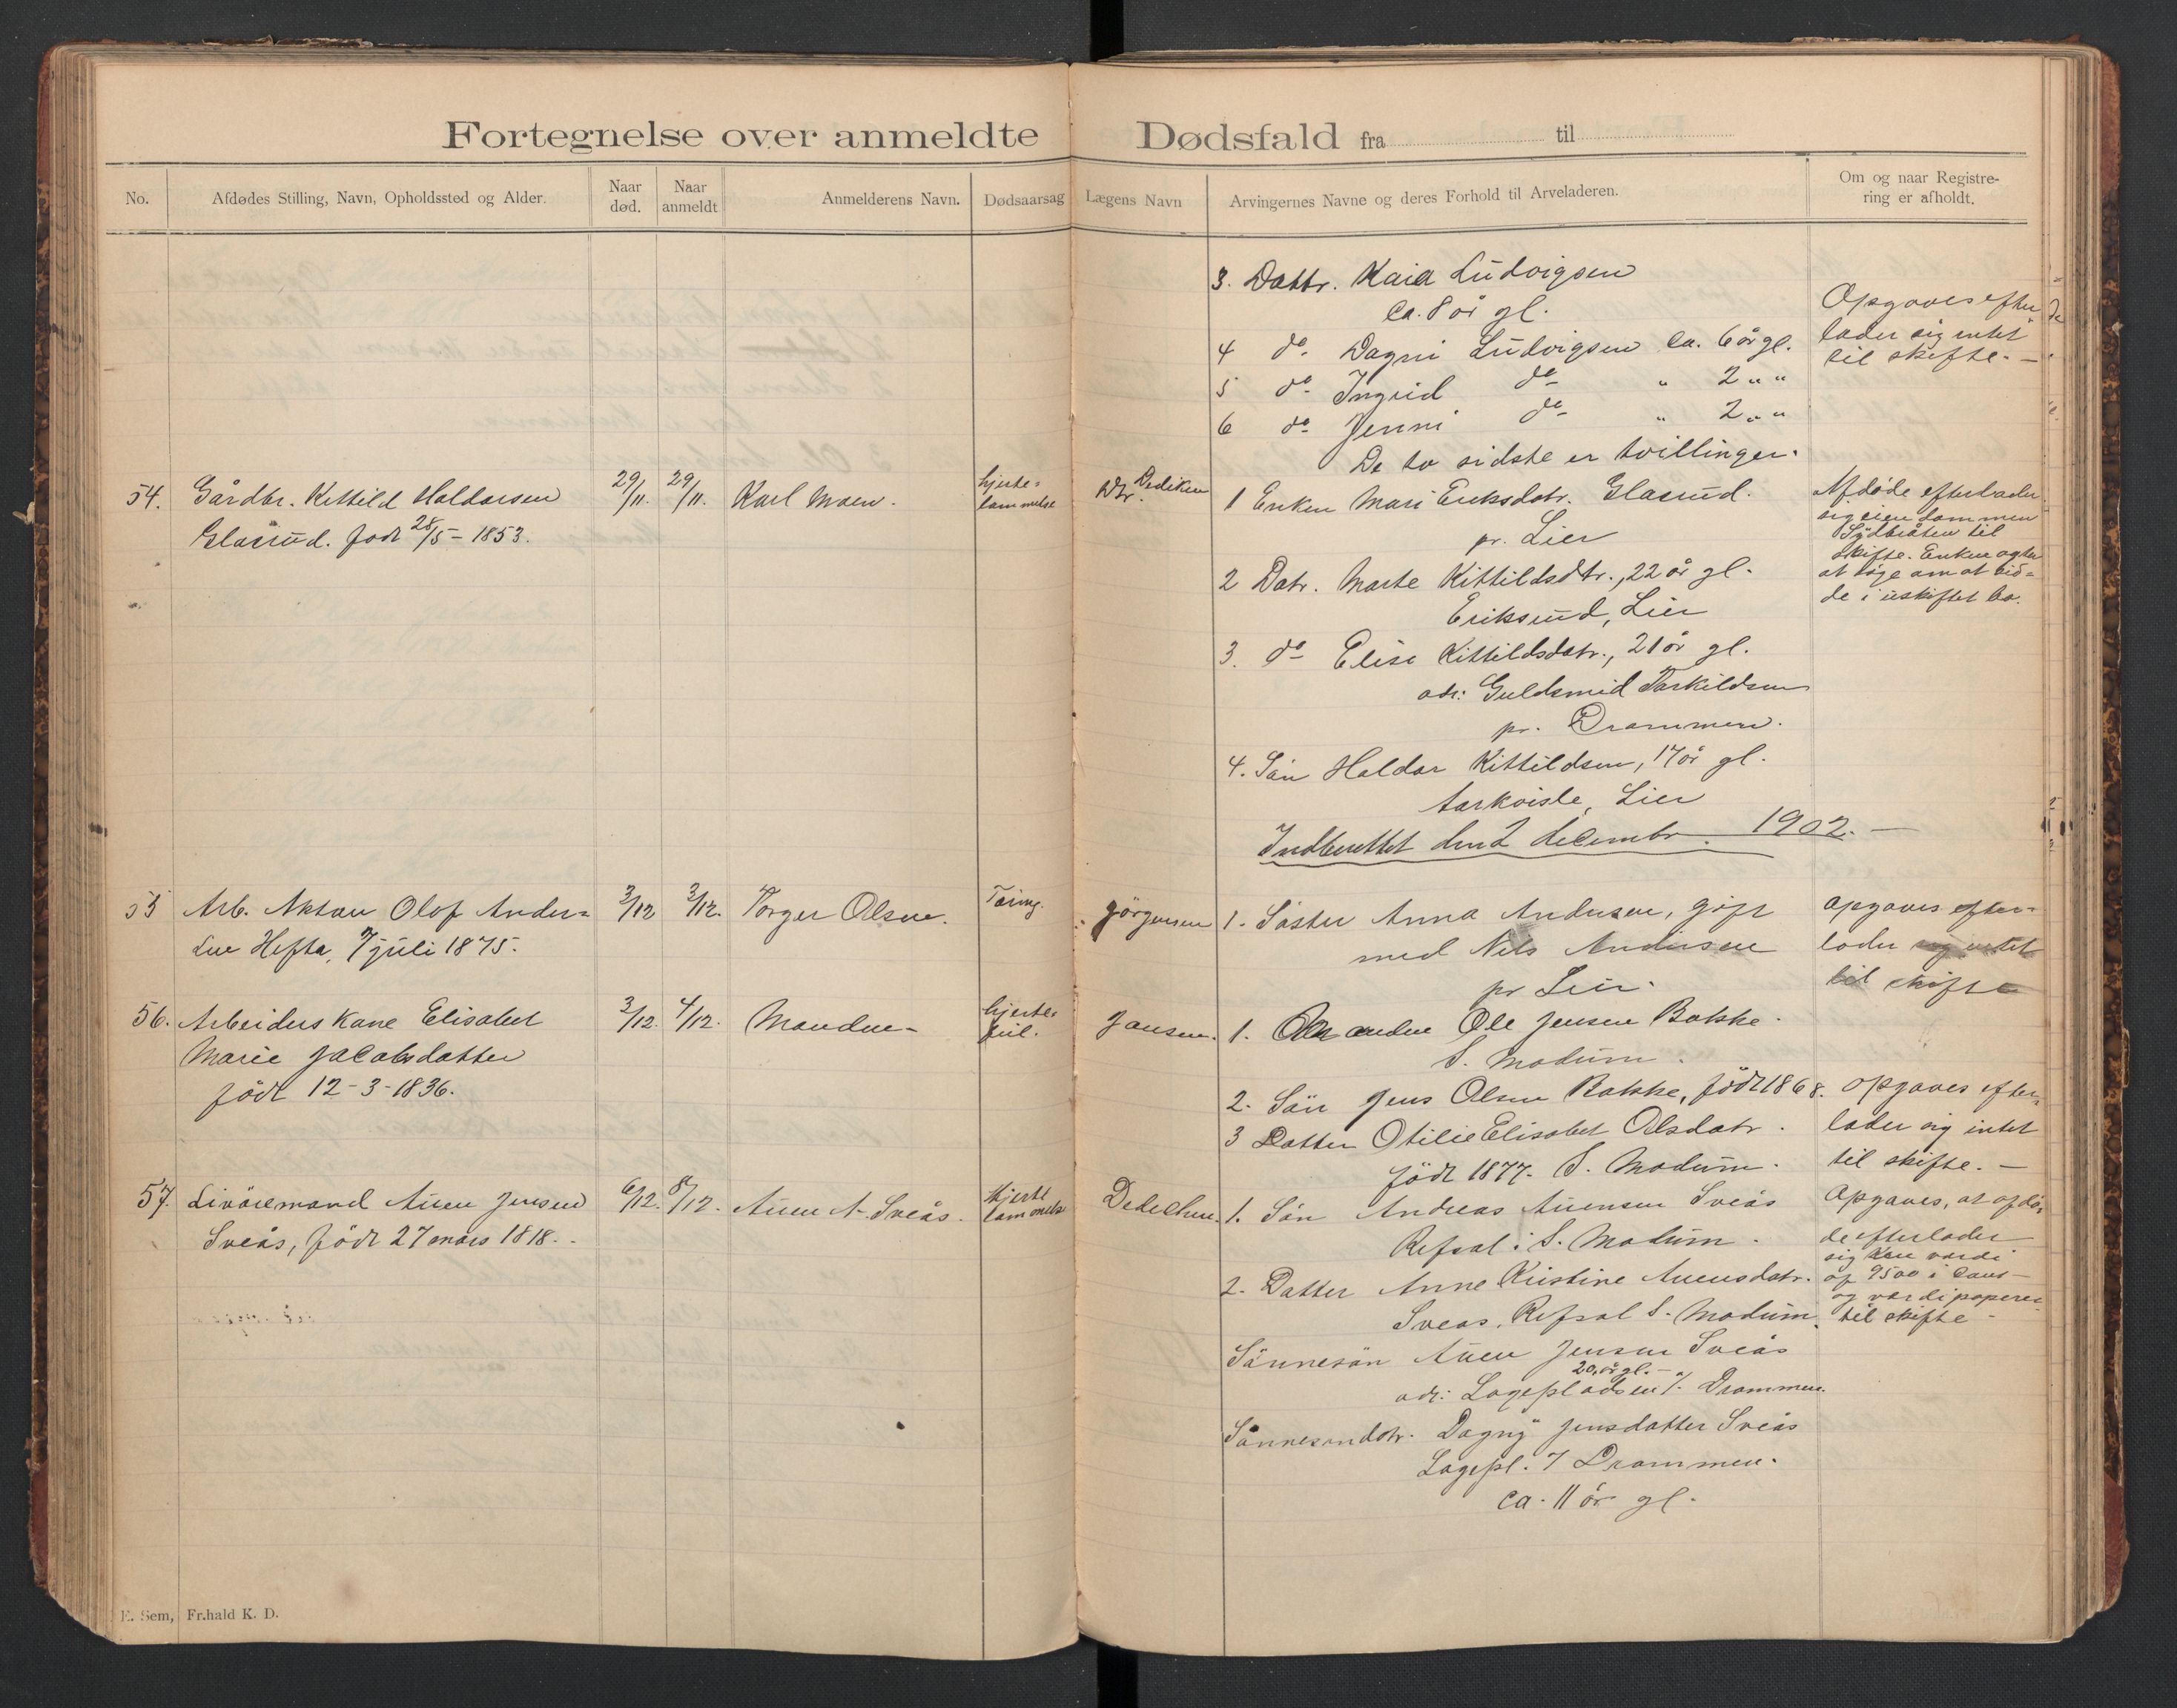 Fortegnelse over anmeldte Dødsfald fra til
No. Afdødes Stilling, Navn, Opholdssted og Alder. Naar død. Naar anmeldt Anmelderens Navn. Dødsaarsag Lægens Navn Arvingernes Navne og deres Forhold til Arveladeren. Om og naar Registrering er afholdt.
3. Dattr. Kaia Ludvigsen
ca. 8 år gl.
4 do. Dagni Ludvigsen ca. 6 år gl.
5 do. Ingrid do " 2 " "
6 do. Jenni do " 2 " "
De to sidste er tvillinger.
Opgaves efter
lader sig intet
til skifte. —
54. Gårdbr. Kittild Haldorsen
Glåsrud. født 28/5 - 1853.
29/11. 29/11. Karl Moen.
hjerte=
lammelse
Dr.
1 Enken Mari Eriksdatr. Glasrud.
pr. Lier
2 Datr. Marte Kittildsdtr., 22 år gl.
Eriksrud, Lier
3. do Elise Kittildsdatr., 21 år gl.
adr: Guldsmid Torkildsen
pr. Drammen.
4. Sön Haldor Kittildsen, 17 år gl.
Lier
Indberettet den 2 decembr. 1902. —
Afdøde efterlader
sig eiendommen
til
skifte. Enken agter
at søge om at sid=
de i uskiftet bo.
55 Arb. Anton Olof Ander=
sen Hefta, 7 juli 1875.
3/12 3/12. Torger Olsen.
Tæring.
Jörgensen
1. Söster Anna Andersen, gift
med Nils Andersen
pr Lier.
opgaves efter=
lader sig intet
til skifte
56. Arbeiders Kone Elisabet
Marie Jacobsdatter
född 12-3-1836.
3/12. 4/12. Manden -
hjerte=
feil.
Jansen.
1. Manden Ole Jensen Bakke.
S. Modum.
2. Sön Jens Olsen Bakke, födt 1868.
3 Datter Otilie Elisabet Olsdatr.
födt 1877. S. Modum.
opgaves efter=
lader sig intet
til skifte. —
57. Livöremand Auen Jensen
Sveås, födt 27 mars 1818.
6/12. 8/12. Auen A. Sveås.
Hjerte
lammelse
Dedichen.
1. Sön Andreas Auensen Sveås
Refsal i S. Modum.
2. Datter Anne Kristine Auensdatr.
Sveås, Refsal S. Modum.
Sönnesön Auen Jensen Sveås
20 år gl. —
adr: Lagepladsen 7. Drammen.
Sönnesöndatr. Dagny Jensdatter Sveås
Lagepl. 7 Drammen.
ca. 11 år gl.
Opgaves, at afdö=
de efterlader
sig værdi
af 9500 i
og værdipapirer
til skifte -
E. Sem, Fr.hald K. D.